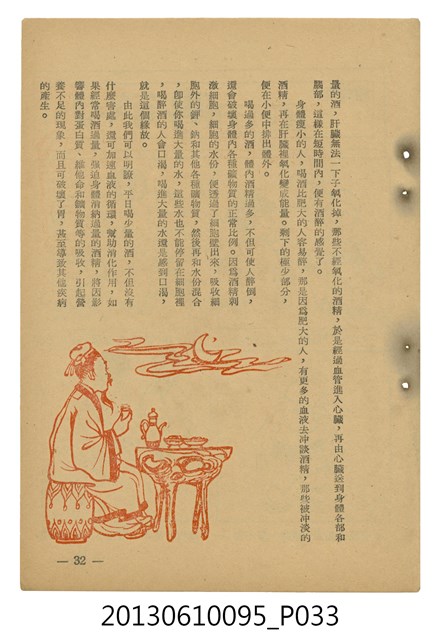 量的酒，肝臟無法一下子氧化掉，那些不經氧化的酒精，於是經過血管進入心臟，再由心臟送到身體各部和
腦部，這樣在短時間內，便有酒醉的感覺了。
身體瘦小的人，喝酒比肥大的人容易醉，那是因為肥大的人，有更多的血液去冲淡酒精，那些被冲淡的
酒精，再在肝臟裡氧化變成能量。剩下的極少部分，
便在小便中排出體外。
喝過多的酒，體內酒精過多，不但可使人醉倒，
還會破壞身體內各種礦物質的正常比例。因為酒精刺
激細胞，細胞的水份，便透過了細胞壁出來，吸收細
胞外的鉀、鈉和其他各種礦物質，然後再和水份混合
，卽使你喝進大量的水，這些水也不能停留在細胞裡
，喝醉酒的人會口渴，喝進大量的水還是感到口渴，
就是這個緣故。
由此我們可以明瞭，平日喝少量的酒，不但沒有
什麼害處，還可加速血液的循環，幫助消化作用，如
果經常喝酒過量，强迫身體清納過量的酒精，將因影
響體內對蛋白質、維他命和礦物質等的吸收，引起營
養不足的現象，而且可破壞了胃，甚至導致其他疾病
的產生。
— 32 —
20130610095_P033